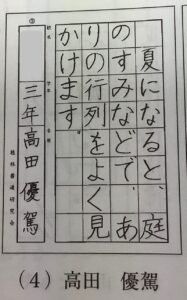 夏になると、庭
のすみなどで、あ
りの行列をよく見
かけます。
三年 高田優駕
(4) 高田 優駕